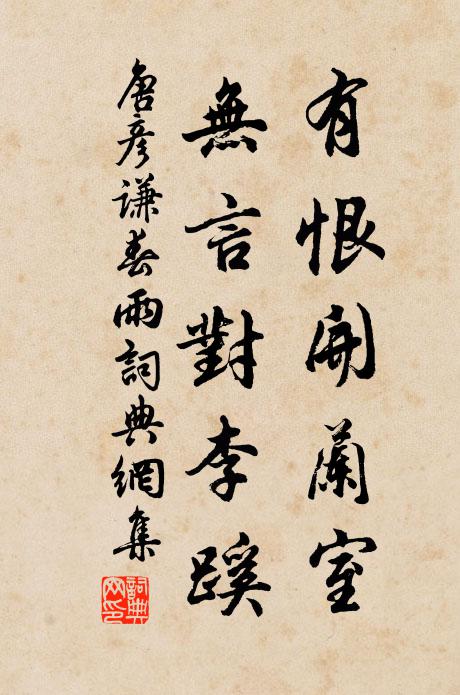 有恨開蘭室
無言對李蹊
唐彥謙春雨詞典網集
詞典网印